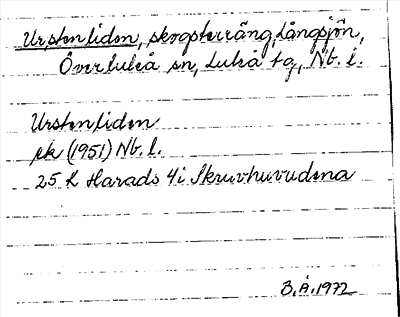 Urstenliden, skogsterräng, Långsjön,
Överluleå sn, Luleå tg, Nb. l.
Urstenliden
ek (1951) Nb. l.
25 K Harads 4i Skruvhuvudena
B. Å. 1972